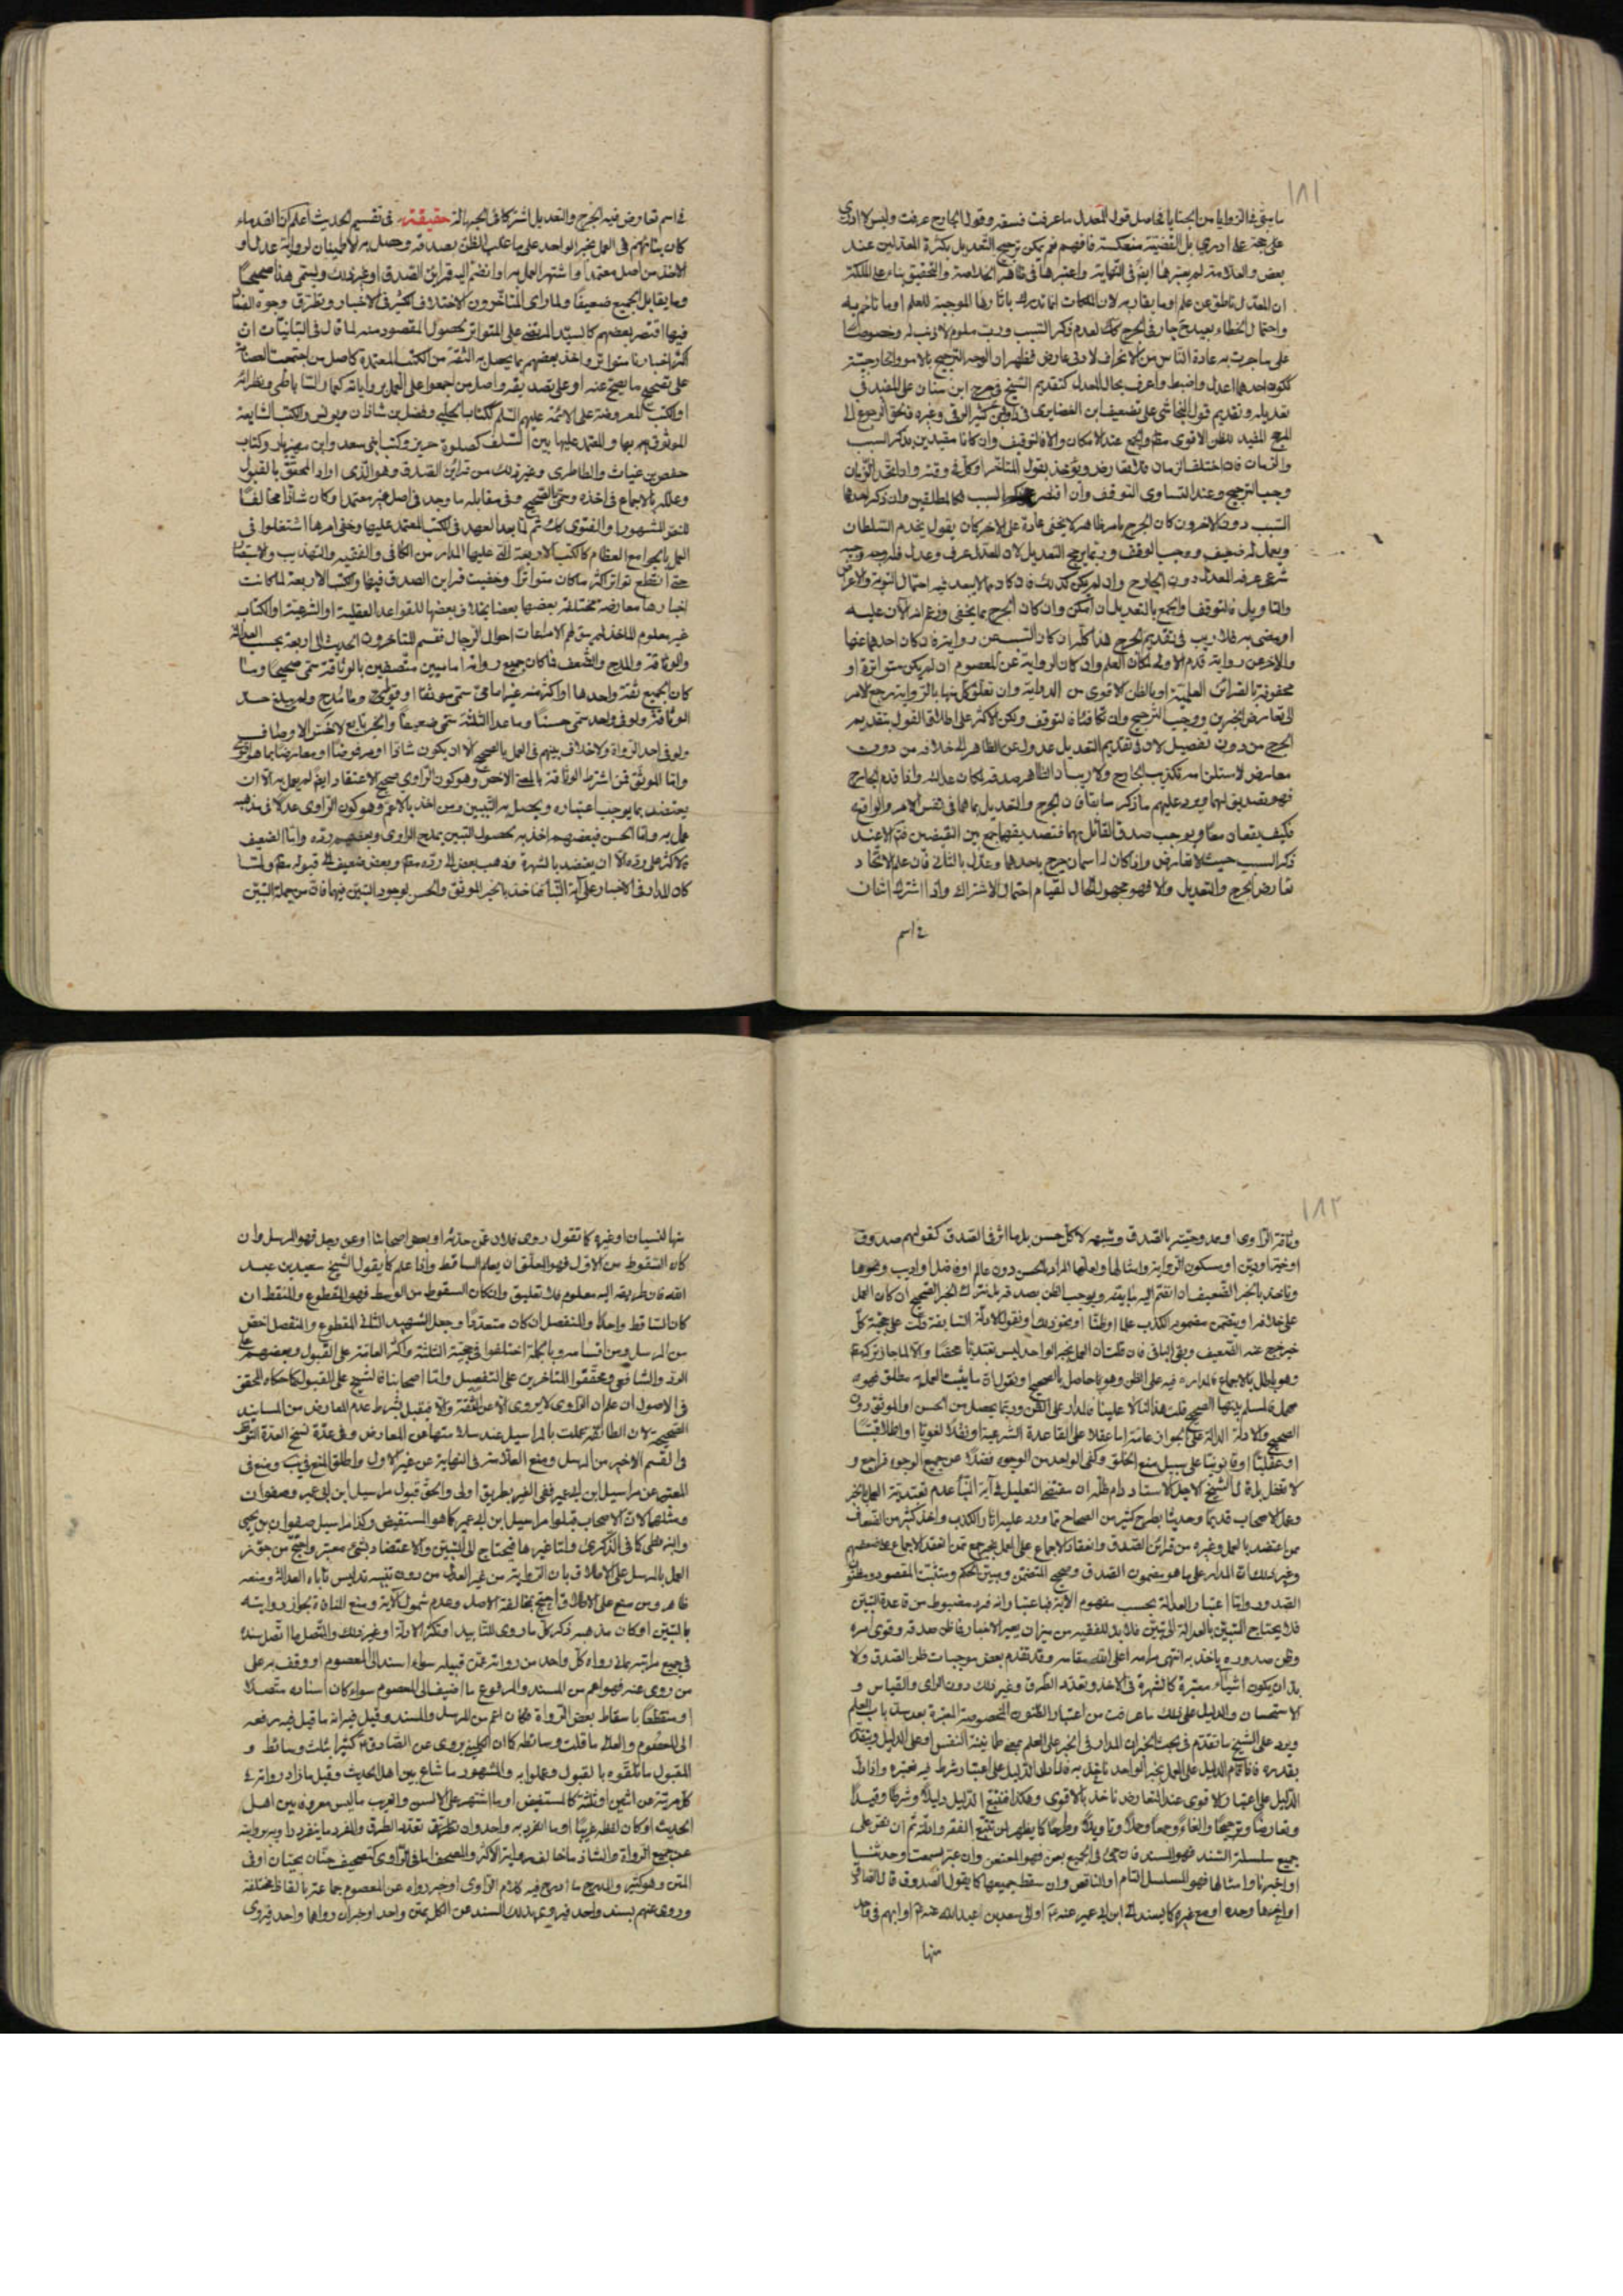 ١٨١
ما بقي في الزوايا من الخبايا فحاصل قول المعدل ما عرفت فسقه وقول الجارح عرفت وليس لا ادري
على ادري بل القضية منعكسة فافهم نعم يمكن ترجيح التعديل بكثرة المعدلين عند
بعض والعلامة لم يعتبرها ايضا في النهاية واعتبرها في ظاهر الخلاصة والتحقيق بناء على الملكة
ان المعدل ناطق عن علم او ما يقاربه لان الملكات انما تدرك باثارها الموجبة للعلم او ما تاخم به
واحتمال الخطاء بعيد جار في الجرح لعدم ذكر السبب ورب ملوم لا ذنب له وخصوصا
على ما جرت به عادة الناس من الانحراف لادنى عارض فظهر ان الوجه الترجيح بالامور الخارجية
ككون احدهما اعدل واضبط واعرف بحال المعدل كتقديم الشيخ في جرح ابن سنان على المفيد في
تعديله وتقديم قول النجاشي على تضعيف ابن الغضايري في داود بن كثير الرقي وغيره فالحق الرجوع الى
المرجح المفيد للظن الاقوى مطلقا والجمع عند الامكان والا فالتوقف وان كانا مقيدين بذكر السبب
والزمان فان اختلف الزمان فلا تعارض ويؤخذ بقول المتاخر او كل في وقته وان اتحد الزمان
وجب الترجيح وعند التساوي التوقف وان اقتصر على السبب فكالمطلقين وان ذكر احدهما
السبب دون الاخر فان كان الجرح بامر ظاهر لا يخفى عادة على الاخر كان يقول يخدم السلطان
ويعمل له ضعيف ووجب التوقف وربما يرجح التعديل لان المعدل عرف وعدل فله وجه وجيه
شرعي عرفه المعدل دون الجارح وان لم يكن كذلك فان كان مما لا يبعد فيه احتمال التوبة والاعراض
والتاويل فالتوقف والجمع بالتعديل ان امكن وان كان الجرح مما يخفى وزعم انه الآن عليه
او مضى به فلا ريب في تقديم الجرح هذا كله ان كان السبب عن رواية فان كان احدهما عنها
والاخر عن رواية قدم الاول لمكان العلم وان كان الرواية عن المعصوم ان لم يكن متواترة او
محفوفة بالقرائن العلمية او بالظن الاقوى من الدراية وان تعلق كل منها بالرواية رجع الامر
الى تعارض الخبرين ووجب الترجيح وان تكافئا فالتوقف ولكن الاكثر على اطلاق القول بتقديم
الجرح من دون تفصيل لان في تقديم التعديل عدول عن الظاهر الى خلافه من دون
معارض لاستلزامه تكذيب الجارح ولا ريب ان الظاهر صدقه لمكان عدالته واذا قدم الجارح
فهو تصديق لهما ويرد عليهم ما ذكر سابقا فان الجرح والتعديل بما هما في نفس الامر والواقع
فكيف يقعان معا ويوجب صدق القائل بهما فتصديقهما جمع بين النقيضين فتم الا عند
ذكر السبب حيث لا تعارض واذا كان له اسمان جرح باحدهما وعدل بالثاني فان علم الاتحاد
تعارض الجرح والتعديل والا فهو مجهول الحال لقيام احتمال الاشتراك واذا اشترك اثنان
في اسم
في اسم تعارض فيه الجرح والتعديل اشتركا في الجهالة حقيقة في تقسيم الحديث اعلم ان القدماء
كان بنائهم في العمل بخبر الواحد على ما غلب الظن بصدقه وحصل به الاطمينان لرواية عدل او
الاخذ من اصل معتمد او اشتهر العمل به او انضم اليه قرائن الصدق او غير ذلك ويسمى هذا صحيحا
وما يقابل الجميع ضعيفا ولما راى المتاخرون الاختلاف الكثير في الاخبار وتطرق وجوه الفساد
فيها اقتصر بعضهم كالسيد المرتضى على المتواتر لحصول المقصود منه لما قال في التبانيات ان
اكثر اخبارنا متواتر واخذ بعضهم بما يحصل به الثقة من الكتب المعتمدة كاصل من اجتمعت العصابة
على تصحيح ما يصح عنه او على تصديقه واصل من اجمعوا على العمل برواياته كعمار الساباطي ونظرائه
او الكتب المعروضة على الائمة عليهم السلم ككتاب الحلبي وفضل بن شاذان ويونس والكتب الشايعة
الموثوق بها والمعتمد عليها بين السلف كصلوة حريز وكتب ابني سعد وابن مهزيار وكتاب
حفص بن غياث والطاطري وغير ذلك من قرائن الصدق وهو الذي اراد المحقق بالقبول
وعلله بالاجماع في اخذه وسمى بالصحيح وفي مقابله ما وجد في اصل غير معتمد او كان شاذا مخالفا
للنص المشهور او الفتوى كك ثم لما بعد العهد في الكتب المعتمد عليها وخفي امرها اشتغلوا في
العمل بالجوامع العظام كالكتب الاربعة التي عليها المدار من الكافي والفقيه والتهذيب والاستبصار
حتى انقطع تواتر اكثر ما كان متواترا وخفيت قراين الصدق فيها والكتب الاربعة لما كانت
اخبارها معارضة مختلفة بعضها بعضا مخالف بعضها للقواعد العقلية او الشرعية او الكتاب
غير معلوم الماخذ لهم بقي لهم الا مراعات احوال الرجال فقسم المتاخرون الحديث الى اربعة بحسب العدالة
والوثاقة والمدح والضعف فما كان جميع رواته اماميين متصفين بالوثاقة سمي صحيحا وما
كان الجميع ثقة واحدها او اكثر منه غير امامي سمي موثقا او قويا وما مدح ولم يبلغ حد
الوثاقة ولو في واحد سمي حسنا وما عدا الثلثة سمي ضعيفا والخبر تابع لاخس الاوصاف
ولو في احد الرواة ولا خلاف بينهم في العمل بالصحيح الا ان يكون شاذا او مرفوضا او معارضا بما هو ارجح
واما الموثق فمن اشترط الوثاقة بالمعنى الاخص وهو كون الراوي صحيح الاعتقاد ايضا لم يعمل به الا ان
يعتضد بما يوجب اعتباره ويحصل به التبيين ومن اخذ بالاعم وهو كون الراوي عدلا في مذهبه
عمل به واما الحسن فبعضهم اخذ به لحصول التبين بمدح الراوي وبعضهم رده واما الضعيف
فالاكثر على رده الا ان يعتضد بالشهرة وذهب بعض الى رده مطلقا وبعض ضعيف الى قبوله مطلقا ولما
كان المدار في الاخبار على آية النبأ فما خذ بالخبر الموثق والحسن لوجود التبين فيها فان من جملة التبين
١٨٢
وثاقة الراوي او ممدوحيته بالصدق وشبهه لا كل حسن بل ما اثر في الصدق كقولهم صدوق
او خير او دين او مسكون الرواية وامثالها ولعلهما المراد بالحسن دون عالم او فاضل واديب ونحوها
وناخذ بالخبر الضعيف ان انضم اليه ما يقويه ويوجب الظن بصدقه بل نترك الخبر الصحيح ان كان العمل
على خلافه او يتضمن مضمونه الكذب علما او ظنا او نحو ذلك ونقول الادلة السابقة دلت على حجية كل
خبر خرج عنه الضعيف وبقي الباقي فان قلت ان العمل بخبر الواحد ليس تعبديا محضا والا لما جاز تركه
وهو باطل بالاجماع فالمدار فيه على الظن وهو ما حاصل بالصحيح او نقول ان ما يثبت العمل به مطلق فهو
مجمل فالمسلم منها الصحيح قلت هذا لنا لا علينا فالمدار على الظن وربما يحصل من الحسن او الموثق دون
الصحيح والادلة الدالة على الجواز عامة اما عقلا على القاعدة الشرعية او نقلا لغويا او اطلاقيا
او عقليا او قانونيا على سبيل منع الخلو وكفى الواحد من الوجوه فضلا عن جميع الوجوه فراجع و
لا تغفل بل قال الشيخ الاجل الاستاد دام ظله ان مقتضى التعليل في آية النبأ عدم تعبدية العمل بالخبر
وعمل الاصحاب قديما وحديثا بطرح كثير من الصحاح مما ورد عليه اثار الكذب واخذ كثير من الضعاف
مما اعتضد بالعمل وغيره من قرائن الصدق وانعقاد الاجماع على العمل
وغير ذلك ان المدار على ما هو مضمون الصدق
الصدور واما اعتبار العدالة بحسب مفهوم الآية فباعتبار انه فرد مضبوط من قاعدة التبين
فلا يحتاج التبين بالعدالة الى تبين فلا بد للفقيه من ميزان يعير الاخبار فما ظن صدقه وقوى امره
وظن صدوره ياخذ به انتهى مرامه اعلى الله مقامه وقد تقدم بعض موجبات ظن الصدق ولا
بد ان يكون اشياء معتبرة كالشهرة في الاخذ وتعدد الطرق وغير ذلك دون الراي والقياس و
الاستحسان والدليل على ذلك ما عرفت من اعتبار الظنون المخصوصة المعتبرة بعد سد باب العلم
ويرد على الشيخ ما تقدم في بحث الخبر ان المدار في الخبر على العلم بمعنى طمانينة النفس او على الدليل ويتقدر
بقدره فاذا قام الدليل على العمل بخبر الواحد ناخذ به فلما دل الدليل على اعتبار شرط فيه نعتبره واذا دل
الدليل على اعتبار الاقوى عند التعارض ناخذ بالاقوى وهكذا فنتبع الدليل دليلا وشرطا وقيدا
وتعارضا وترجيحا والغاء وجمعا وحملا وتاويلا وطرحا كما يظهر لمن تتبع الفقه وادلته ثم ان نص على
جميع سلسلة السند فهو المسند فان عنعن في الجميع بعن فهو المعنعن وان عبر بسمعت او حدثنا
او اخبرنا وامثالها فهو المسلسل التام او الناقص وان سقط جميعها كما يقول الصدوق قال الصادق
او اخرها وحده او مع غيره كما يسند الى ابن ابي عمير عنه او الى سعد بن عبد الله عنه او ابهم في واحد
منها
منها لنسيان او غيره كما تقول روى فلان عمن حدثه او بعض اصحابنا او عن رجل فهو المرسل وان
كان السقوط من الاول فهو المعلق ان يعلم الساقط واذا علم كما يقول الشيخ سعد بن عبد
الله فان طريقه اليه معلوم فلا تعليق وان كان السقوط من الوسط فهو المقطوع والمنقطع ان
كان الساقط واحدا والمنفصل ان كان متعددا وجعل الشهيد الثاني المقطوع والمنفصل اخص
من المرسل ومن اقسامه وبالجملة اختلفوا في حجية الثلثة واكثر العامة على القبول وبعضهم على
الرد والشافعي ومحققوا المتاخرين على التفصيل واما اصحابنا فالشيخ على القبول كما حكاه المحقق
في الاصول ان علم ان الراوي لا يروي الا عن الثقة والا فيقبل بشرط عدم المعارض من المسانيد
الصحيحة لان الطائفة عملت بالمراسيل عند سلامتها من المعارض وفي عدة نسخ العدة التوقف
في القسم الاخير من المرسل ومنع العلامة في النهاية عن غير الاول واطلق المنع في يب ومنع في
المعتبر عن مراسيل ابن ابي عمير ففي الغير بطريق اولى والحق قبول مراسيل ابن ابي عمير وصفوان
ومثلهما لان الاصحاب قبلوا مراسيل ابن ابي عمير كما هو المستفيض وكذا مراسيل صفوان بن يحيى
والبزنطي كما في الذكرى واما غيرها فيحتاج الى التبين والاعتضاد بشيء معتبر واحتج من جوز
العمل بالمرسل على الاطلاق بان الرواية من غير العدل من دون تنبيه تدليس تاباه العدالة ومنعه
ظاهر ومن منع على الاطلاق احتج بمخالفة الاصل وعدم شمول الآية ومنع المنافاة لجواز روايته
بالتبين او كان مذهبه ذكر كل ما روى للتاييد او تكثر الادلة او غير ذلك والمتصل ما اتصل سنده
في جميع مراتبه بما رواه كل واحد من رواته عمن قبله سواء اسند الى المعصوم او وقف به على
من روى عنه فهو اعم من المسند والمرفوع ما اضيف الى المعصوم سواء كان اسناده متصلا
او منقطعا باسقاط بعض الرواة فكان اعم من المرسل والمسند وقيل فيه انه ما قيل فيه رفعه
الى المعصوم والعالي ما قلت وسائطه كما ان الكليني يروي عن الصادق كثيرا بثلث وسائط و
المقبول ما تلقوه بالقبول وعملوا به والمشهور ما شاع بين اهل الحديث وقيل ما زاد رواته في
كل مرتبة عن اثنين او ثلثة كالمستفيض او ما اشتهر على الالسن والغريب ما ليس معروفا بين اهل
الحديث او كان لفظه غريبا او ما انفرد به واحد وان تطرق تعدد الطرق والمفرد ما ينفرد راويه بروايته
عن جميع الرواة والشاذ ما خالف رواية الاكثر والمصحف اما في الراوي كتصحيف حنان بحيان او في
المتن وهو كثير والمدرج ما ادرج فيه كلام الراوي او خبر رواه عن المعصوم جماعة بالفاظ مختلفة
وروى عنهم بسند واحد فيروي بذلك السند عن الكل بمتن واحد او خبران رواهما واحد فيروي